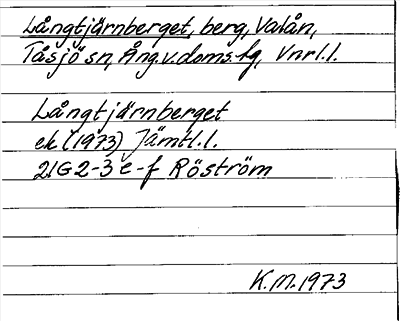 Långtjärnberget, berg, Valån,
Tåsjö sn, Ång.v.doms.fg, Vnrl.l.
Långtjärnberget
ek (1973) Jämtl.l.
21G2-3 e-f Röström
K.M.1973